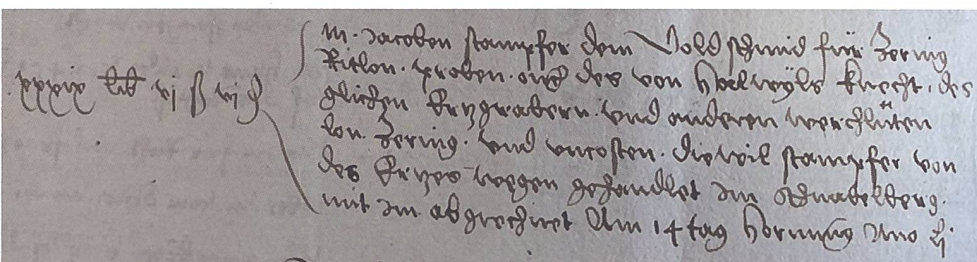 xxxix lib vj ß vj d
M. Jacoben stampfer dem Goldschmid für Zerung
Ritlon. proben. ouch des von Hallwyls knecht. des
glichen Ertzgrabern. und anderen werchlüten
lon. Zerung. und uncosten. diewil stampfer von
des Ertzes wegen gehandlet im Schnabelberg.
mit im abgrechnet Am 14 tag hornung Anno